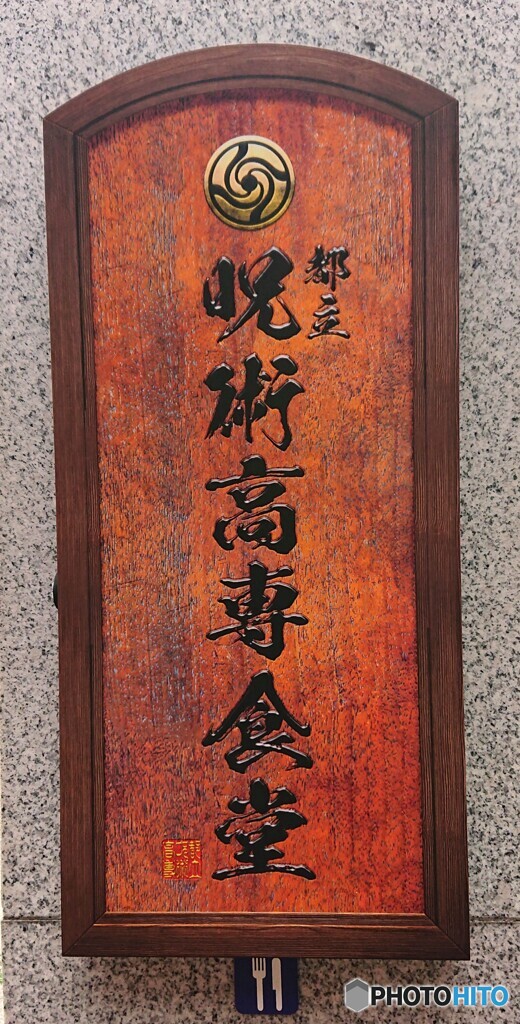 都立
呪術高専食堂
PHOTOHITO